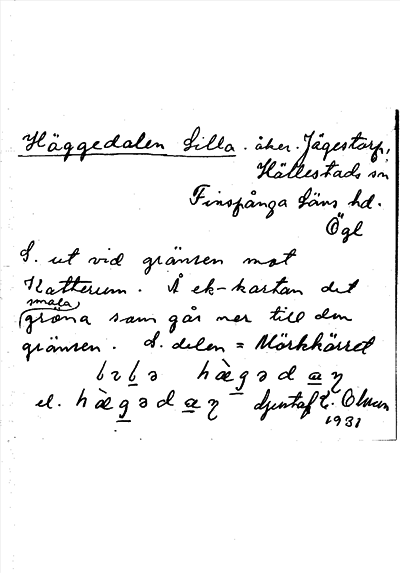 Häggedalen Lilla. åker. Jägestorp,
Hällestads sn
Finspånga läns hd.
Ögl
L. ut vid gränsen mot
Katterum. Å ek-kartan det
smala
gröna som går ner till den
gränsen. S. delen = Mörkkärret
hæ̀gədaŋ
el. hæ̀gədaŋ Gustaf E. Olsson
1931